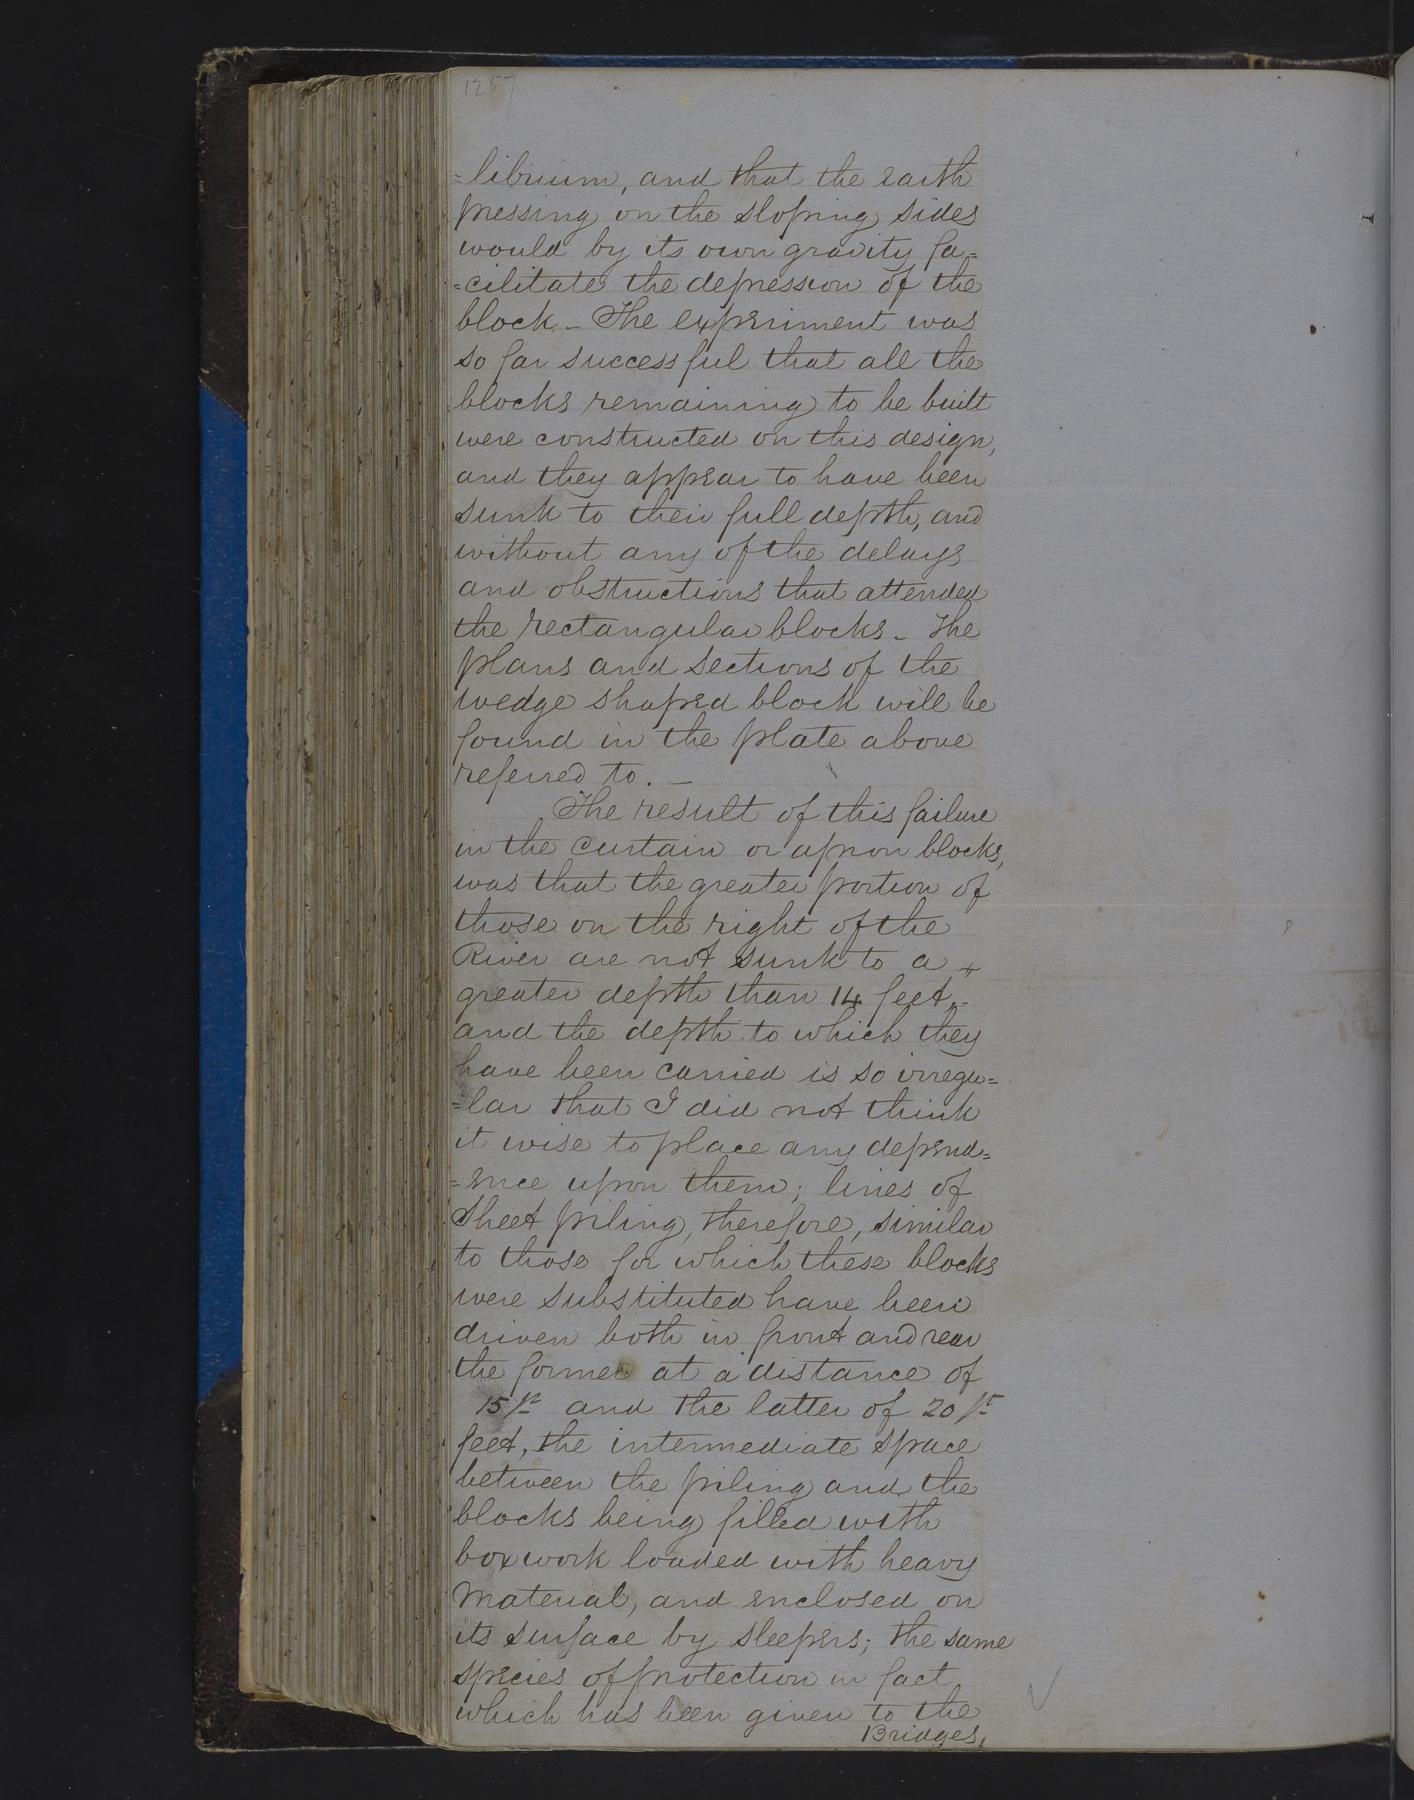 1257
=librium, and that the earth
pressing on the sloping sides
would by its own gravity fa=
=cilitate the depression of the
block_ The experiment was
so far successful that all the
blocks remaining to be built
were constructed on this design,
and they appear to have been
sunk to their full depth, and
without any of the delays
and obstructions that attended
the rectangular blocks_ The
plans and sections of the
wedge shaped block will be
found in the plate above
referred to._
The result of this failure
in the curtain or apron blocks,
was that the greater portion of
those on the right of the
River are not sunk to a
greater depth than 14 feet,-
and the depth to which they
have been carried is so irregu=
=lar that I did not think
it wise to place any depend=
=ence upon them; lines of
sheet piling, therefore, similar
to those for which these blocks
were substituted have been
driven both in front and rear
the former at a distance of
15 ft and the latter of 20 ft
feet, the intermediate space
between the piling and the
blocks being filled with
boxwork loaded with heavy
material, and enclosed on
its surface by sleepers; the same
species of protection in fact
which has been given to the
Bridges,